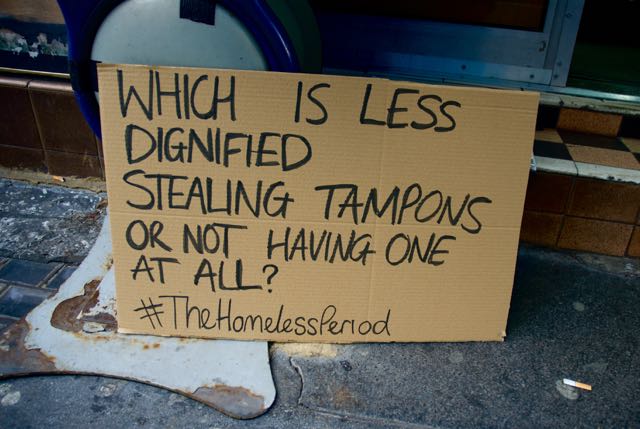 WHICH IS LESS
DIGNIFIED
STEALING TAMPONS
OR NOT HAVING ONE
AT ALL?
#TheHomelessPeriod